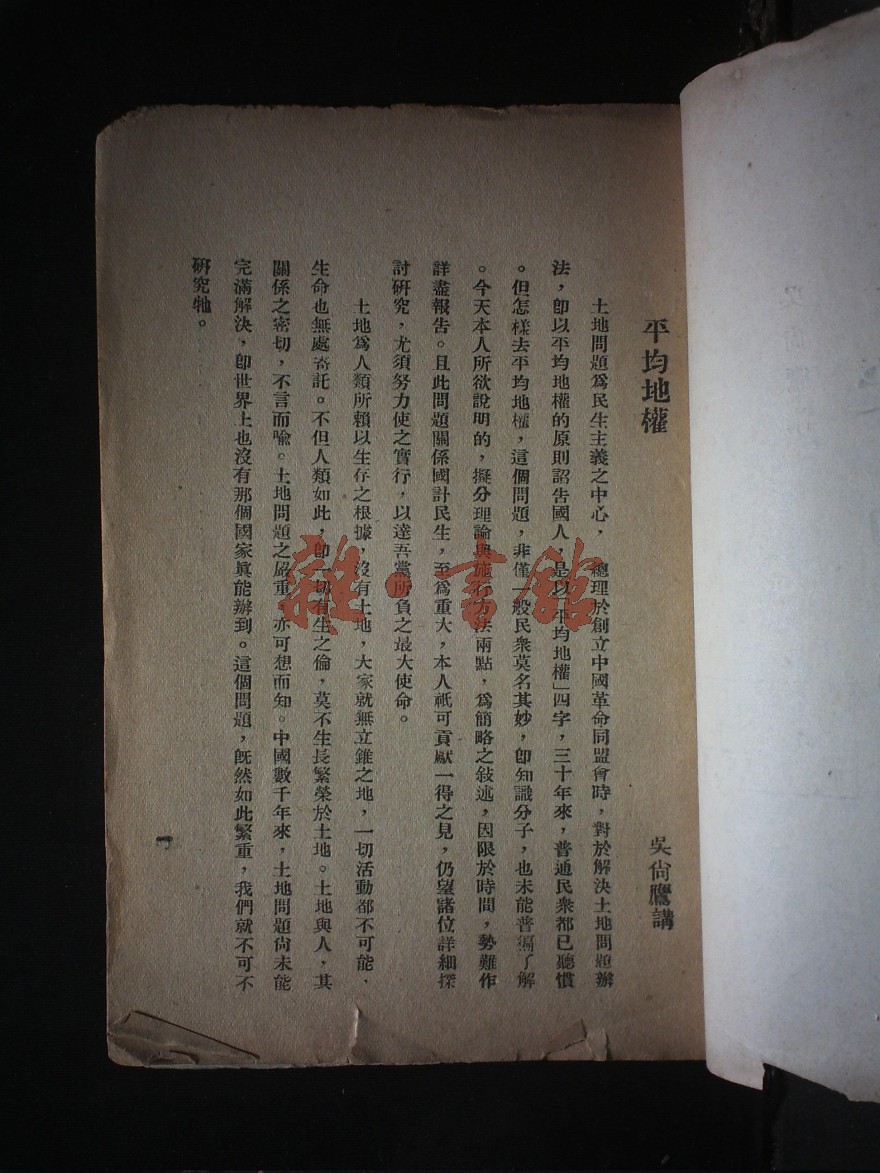 平均地權
吳尙鷹講
土地問題爲民生主義之中心， 總理於創立中國革命同盟會時，對於解決土地問題辦
法，卽以平均地權的原則詔告國人，是以「平均地權」四字，三十年來，普通民衆都已聽慣
。但怎樣去平均地權，這個問題，非僅一般民衆莫名其妙，卽知識分子，也未能普徧了解
。今天本人所欲說明的，擬分理論與施行方法兩點，爲簡略之敍述，因限於時間，勢難作
詳盡報告。且此問題關係國計民生，至爲重大，本人祇可貢獻一得之見，仍望諸位詳細探
討研究，尤須努力使之實行，以達吾黨所負之最大使命。
土地爲人類所賴以生存之根據，沒有土地，大家就無立錐之地，一切活動都不可能，
生命也無處寄託。不但人類如此，卽一切有生之倫，莫不生長繁榮於土地。土地與人，其
關係之密切，不言而喩。土地問題之嚴重，亦可想而知。中國數千年來，土地問題尙未能
完滿解決，卽世界上也沒有那個國家眞能辦到。這個問題，旣然如此繁重，我們就不可不
研究牠。
一
雜·書館